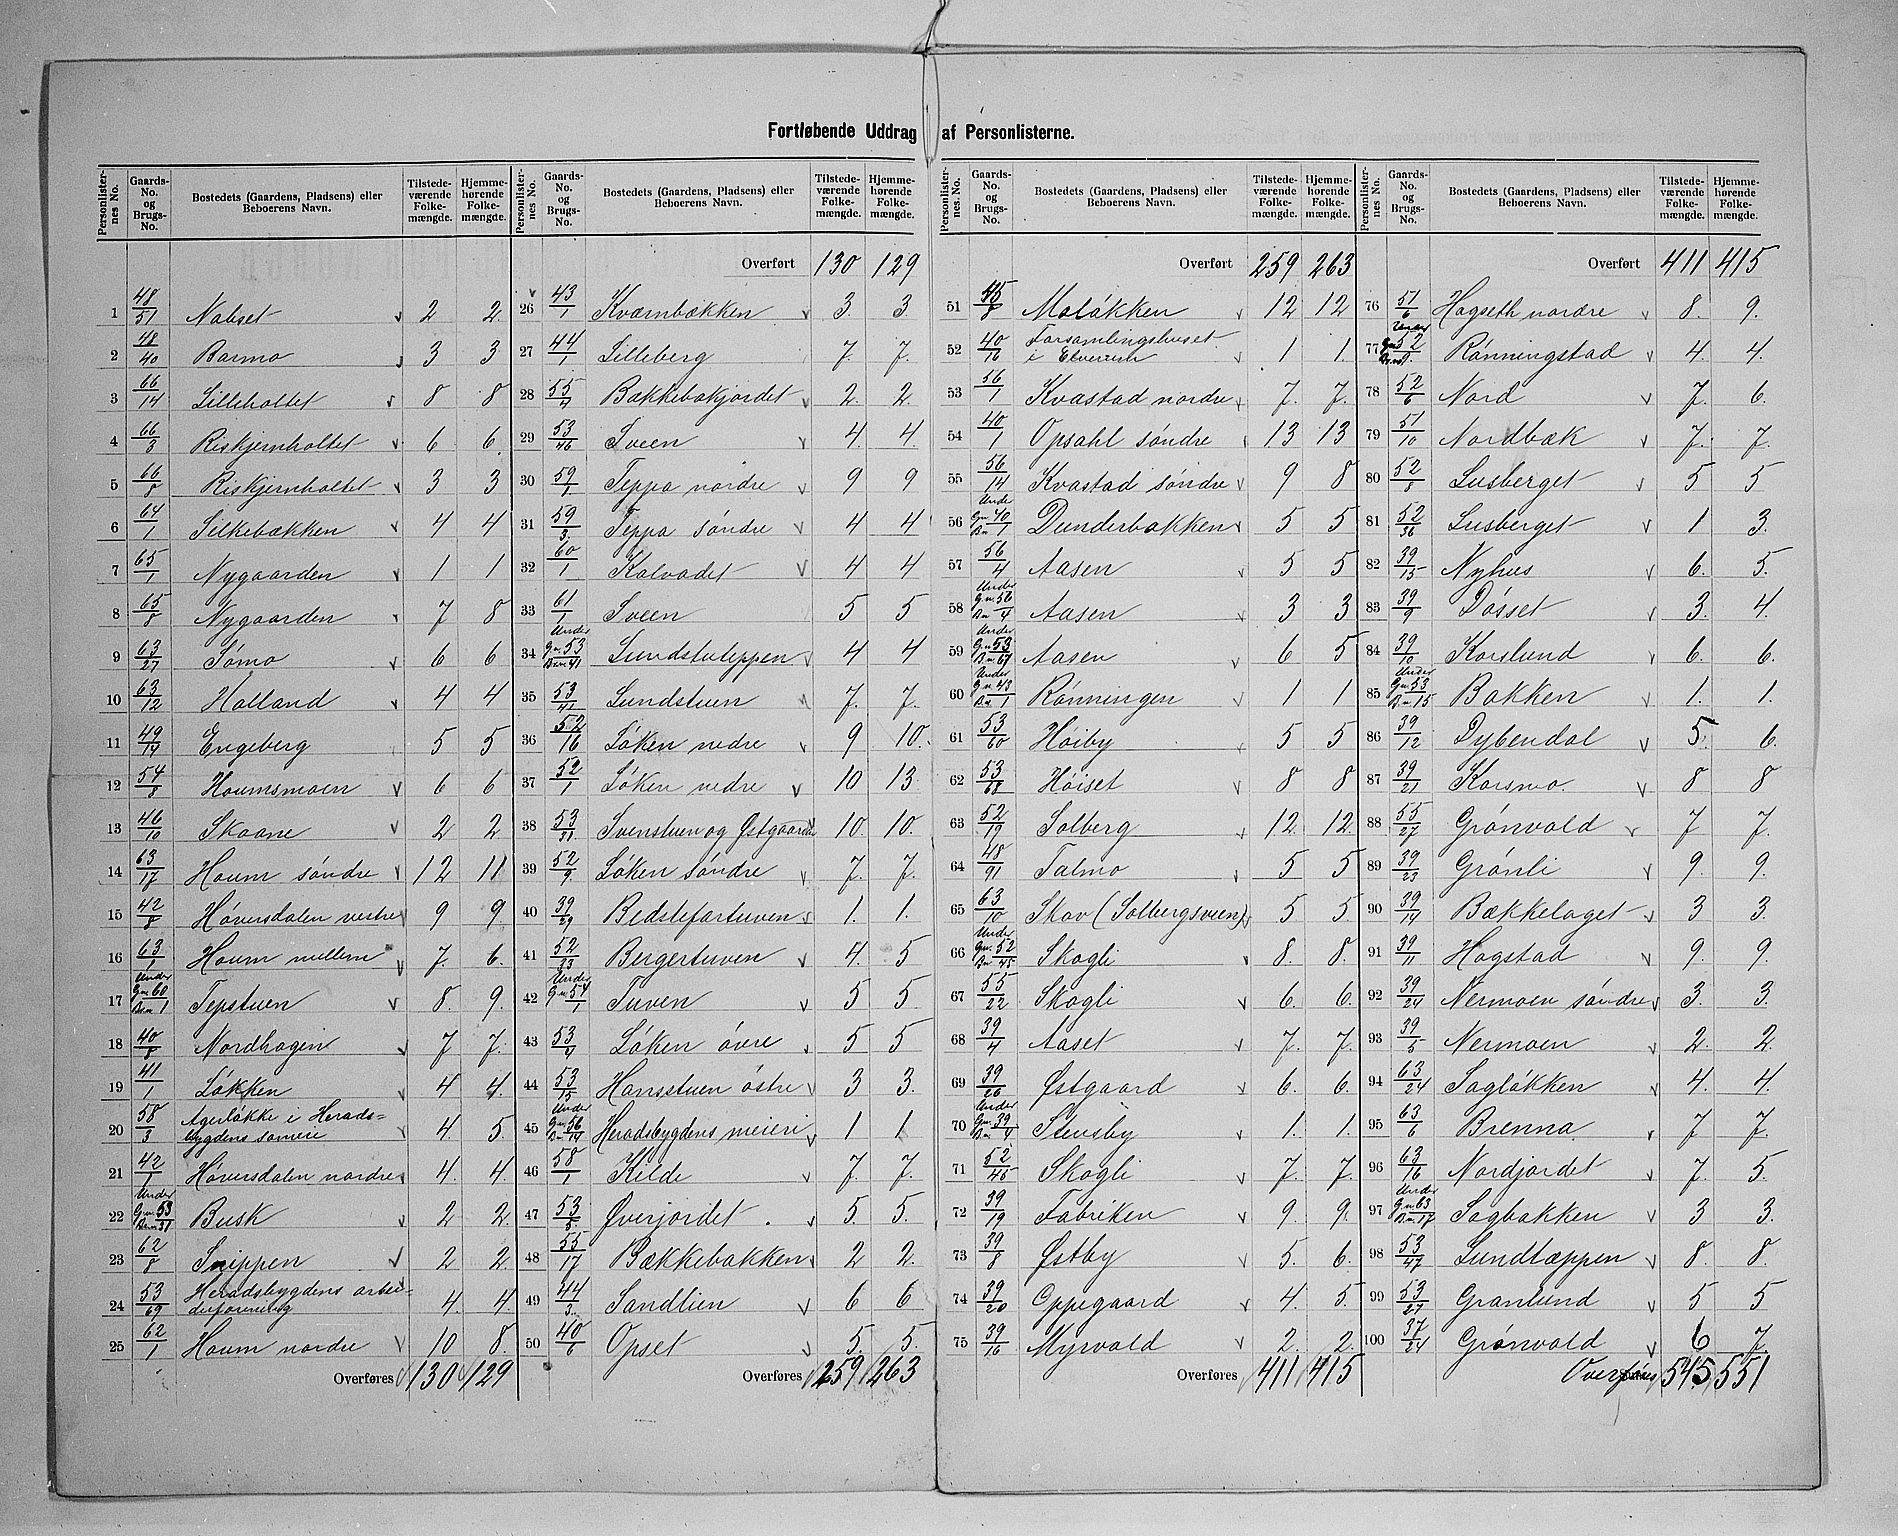 Fortløbende Uddrag af Personlisterne.
Personlisternes No. | Gaards-No. og Brugs-No. | Bostedets (Gaardens, Pladsens) eller Beboerens Navn. | Tilstedeværende Folkemængde. | Hjemmehørende Folkemængde.
1 48/51 Nabset 2 2
2 48/40 Barmo 3 3
3 66/14 Lilleholtet 8 8
4 66/3 Riskjernholtet 6 6
5 66/8 Riskjernholtet 3 3
6 64/1 Silkebækken 4 4
7 65/1 Nygaarden 1 1
8 65/8 Nygaarden 7 8
9 63/27 Sømo 6 6
10 63/12 Holland 4 4
11 49/14 Engeberg 5 5
12 54/8 Houmsmoen 6 6
13 46/10 Skaane 2 2
14 63/17 Houm søndre 12 11
15 42/8 Høversdalen vestre 9 9
16 63/1 Houm mellem 7 6
17 Under G.n. 60 Br.n. 1 Tepstuen 8 9
18 40/8 Nordhagen 7 7
19 41/1 Løkken 4 4
20 58/3 Agerløkke i Herads-
bygdens sameie 4 5
21 42/1 Høversdalen nordre 4 4
22 Under G.n. 53 Br.n. 31 Busk 2 2
23 62/8 Snippen 2 2
24 53/69 Heradsbygdens arbei-
derforening 4 4
25 62/1 Houm nordre 10 8
Overføres 130 129
Overført 130 129
26 43/1 Kværnbækken 3 3
27 44/1 Lilleberg 7 7
28 55/4 Bækkebakjordet 2 2
29 53/46 Sveen 4 4
30 59/1 Teppa nordre 9 9
31 59/3 Teppa søndre 4 4
32 60/1 Kalvadet 4 4
33 61/1 Sveen 5 5
34 Under G.n. 53 Br.n. 41 Lundstuteppen 4 4
35 53/41 Lundstuen 7 7
36 52/16 Løken nedre 9 10
37 52/1 Løken nedre 10 13
38 53/31 Svenstuen og Østgaarden 10 10
39 52/9 Løken søndre 7 7
40 39/29 Bedstefartuven 1 1
41 52/33 Bergertuven 4 5
42 Under G.n. 54/1 Tuven 5 5
43 53/4 Løken øvre 5 5
44 53/15 Hansstuen østre 3 3
45 Under G.n. 56 Br.n. 14 Heradsbygdens meieri 1 1
46 58/1 Kilde 7 7
47 53/5 Øverjordet 5 5
48 55/17 Bækkebakken 2 2
49 44/3 Sandlien 6 6
50 40/6 Opset 5 5
Overføres 259 263
Overført 259 263
51 45/8 Moløkken 12 12
52 40/16 Forsamlingshuset
i Elverum 1 1
53 56/1 Kvastad nordre 7 7
54 40/1 Opsahl søndre 13 13
55 56/14 Kvastad søndre 9 8
56 Under G.n. 40 B.n. 1 Dunderbakken 5 5
57 56/4 Aasen 5 5
58 Under G.n. 56 B.n. 4 Aasen 3 3
59 Under G.n. 53 B.n. 67 Aasen 6 5
60 Under G.n. 43 B.n. 1 Rønningen 1 1
61 53/60 Høiby 5 5
62 53/68 Høiset 8 8
63 52/19 Solberg 12 12
64 48/91 Talmo 5 5
65 63/10 Skov (Solbergsveen) 5 5
66 Under G.n. 52 B.n. 45 Skogli 8 8
67 55/22 Skogli 6 6
68 39/4 Aaset 7 7
69 39/26 Østgaard 6 6
70 Under G.n. 39 B.n. 4 Stensby 1 1
71 52/45 Skogli 7 7
72 39/19 Fabriken 9 9
73 39/8 Østby 5 6
74 39/20 Oppegaard 4 5
75 39/16 Myrvold 2 2
Overføres 411 415
Overført 411 415
76 51/6 Hagseth nordre 8 9
77 Under G.n. 52 Br.n. 9 Rønningstad 4 4
78 52/6 Nord 7 6
79 51/10 Nordbæk 7 7
80 52/8 Lusberget 5 5
81 52/36 Lusberget 1 3
82 39/15 Nyhus 6 5
83 39/9 Døsset 3 4
84 39/10 Korslund 6 6
85 Under G.n. 53 B.n. 15 Bakken 1 1
86 39/12 Dybendal 5 6
87 39/21 Korsmo 8 8
88 55/27 Grønvold 7 7
89 39/23 Grønli 9 9
90 39/14 Bækkelaget 3 3
91 39/11 Hagstad 9 9
92 39/24 Nermoen søndre 3 3
93 39/5 Nermoen 2 2
94 63/24 Sagløkken 4 4
95 63/6 Brenna 7 7
96 63/16 Nordjordet 7 5
97 Under G.n. 63 B.n. 17 Sagbakken 3 3
98 53/47 Lundtæppen 8 8
99 53/27 Granlund 5 5
100 37/24 Grønvold 6 7
Overføres 545 551